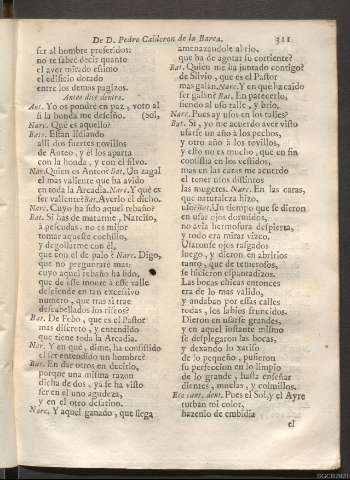 De D. Pedro Calderon de la Barca. 311
ser al hombre preferidos:
no te sabré decir quanto
el aver mirado estimo
el edificio dorado
entre los demás pagizos.
Anteo dice dentro.
Ant. Yo os pondrè en paz, voto al
si la honda me desciño. (Sol,
Narc. Què es aquello?
Bat. Estàn lidiando
alli dos fuertes novillos
de Anteo, y èl los aparta
con la honda, y con el silvo.
Narc. Quien es Anteo? Bat. Un zagal
el mas valiente que ha avido
en toda la Arcadia. Narc. Y què es
ser valiente? Bat. Averlo èl dicho.
Narc. Cuyo ha sido aquel rebaño?
Bat. Si has de matarme, Narciso,
à pescudas, no es mijor
tomar aquesse cochillo,
y degollarme con èl,
que con el de palo? Narc. Digo,
que no preguntarè mas:
cuyo aquel rebaño ha sido,
que de esse monte à esse valle
desciende en tan excessivo
numero, que tras sì trae
descabellados los riscos?
Bat. De Febo, que es el Pastor
mas discreto, y entendido
que tiene toda la Arcadia.
Narc. Y en què, dime, ha consistido
el ser entendido un hombre?
Bat. En dar otros en decirlo,
porque una misma razon
dicha de dos, yà se ha visto
ser en el uno agudeza,
y en el otro desatino.
Narc. Y aquel ganado, que llega
amenazandole al rio,
que ha de agotar su corriente?
Bat. Quien me ha juntado contigo?
de Silvio, que es el Pastor
mas galàn. Narc. Y en què ha caìdo
ser galàn? Bat. En parecerlo,
siendo al uso talle, y brio.
Narc. Pues ay usos en los talles?
Bat. Sì, yo me acuerdo aver visto
usarse un año à los pechos,
y otro año à los tovillos,
y esto no es mucho, que en fin
consistia en los vestidos,
mas en las caras me acuerdo
el tener usos distintos
las mugeres. Narc. En las caras,
que naturaleza hizo,
uso? Bat. Un tiempo que se dieron
en usar ojos dormidos,
no avia hermosura despierta,
y todo era mirar vizco.
Usaronse ojos rasgados
luego, y dieron en abrirlos
tanto, que de temerosos,
se hicieron espantadizos.
Las bocas chicas entonces
era de lo mas valido,
y andaban por essas calles
todas, los labios fruncidos.
Dieron en usarse grandes,
y en aquel instante mismo
se desplegaron las bocas,
y dexando lo xarifo
de lo pequeño, pusieron
su perfeccion en lo limpio
de lo grande, hasta enseñar
dientes, muelas, y colmillos.
Eco cant. dent. Pues el Sol, y el Ayre
turban mi color,
hazenlo de embidia
el